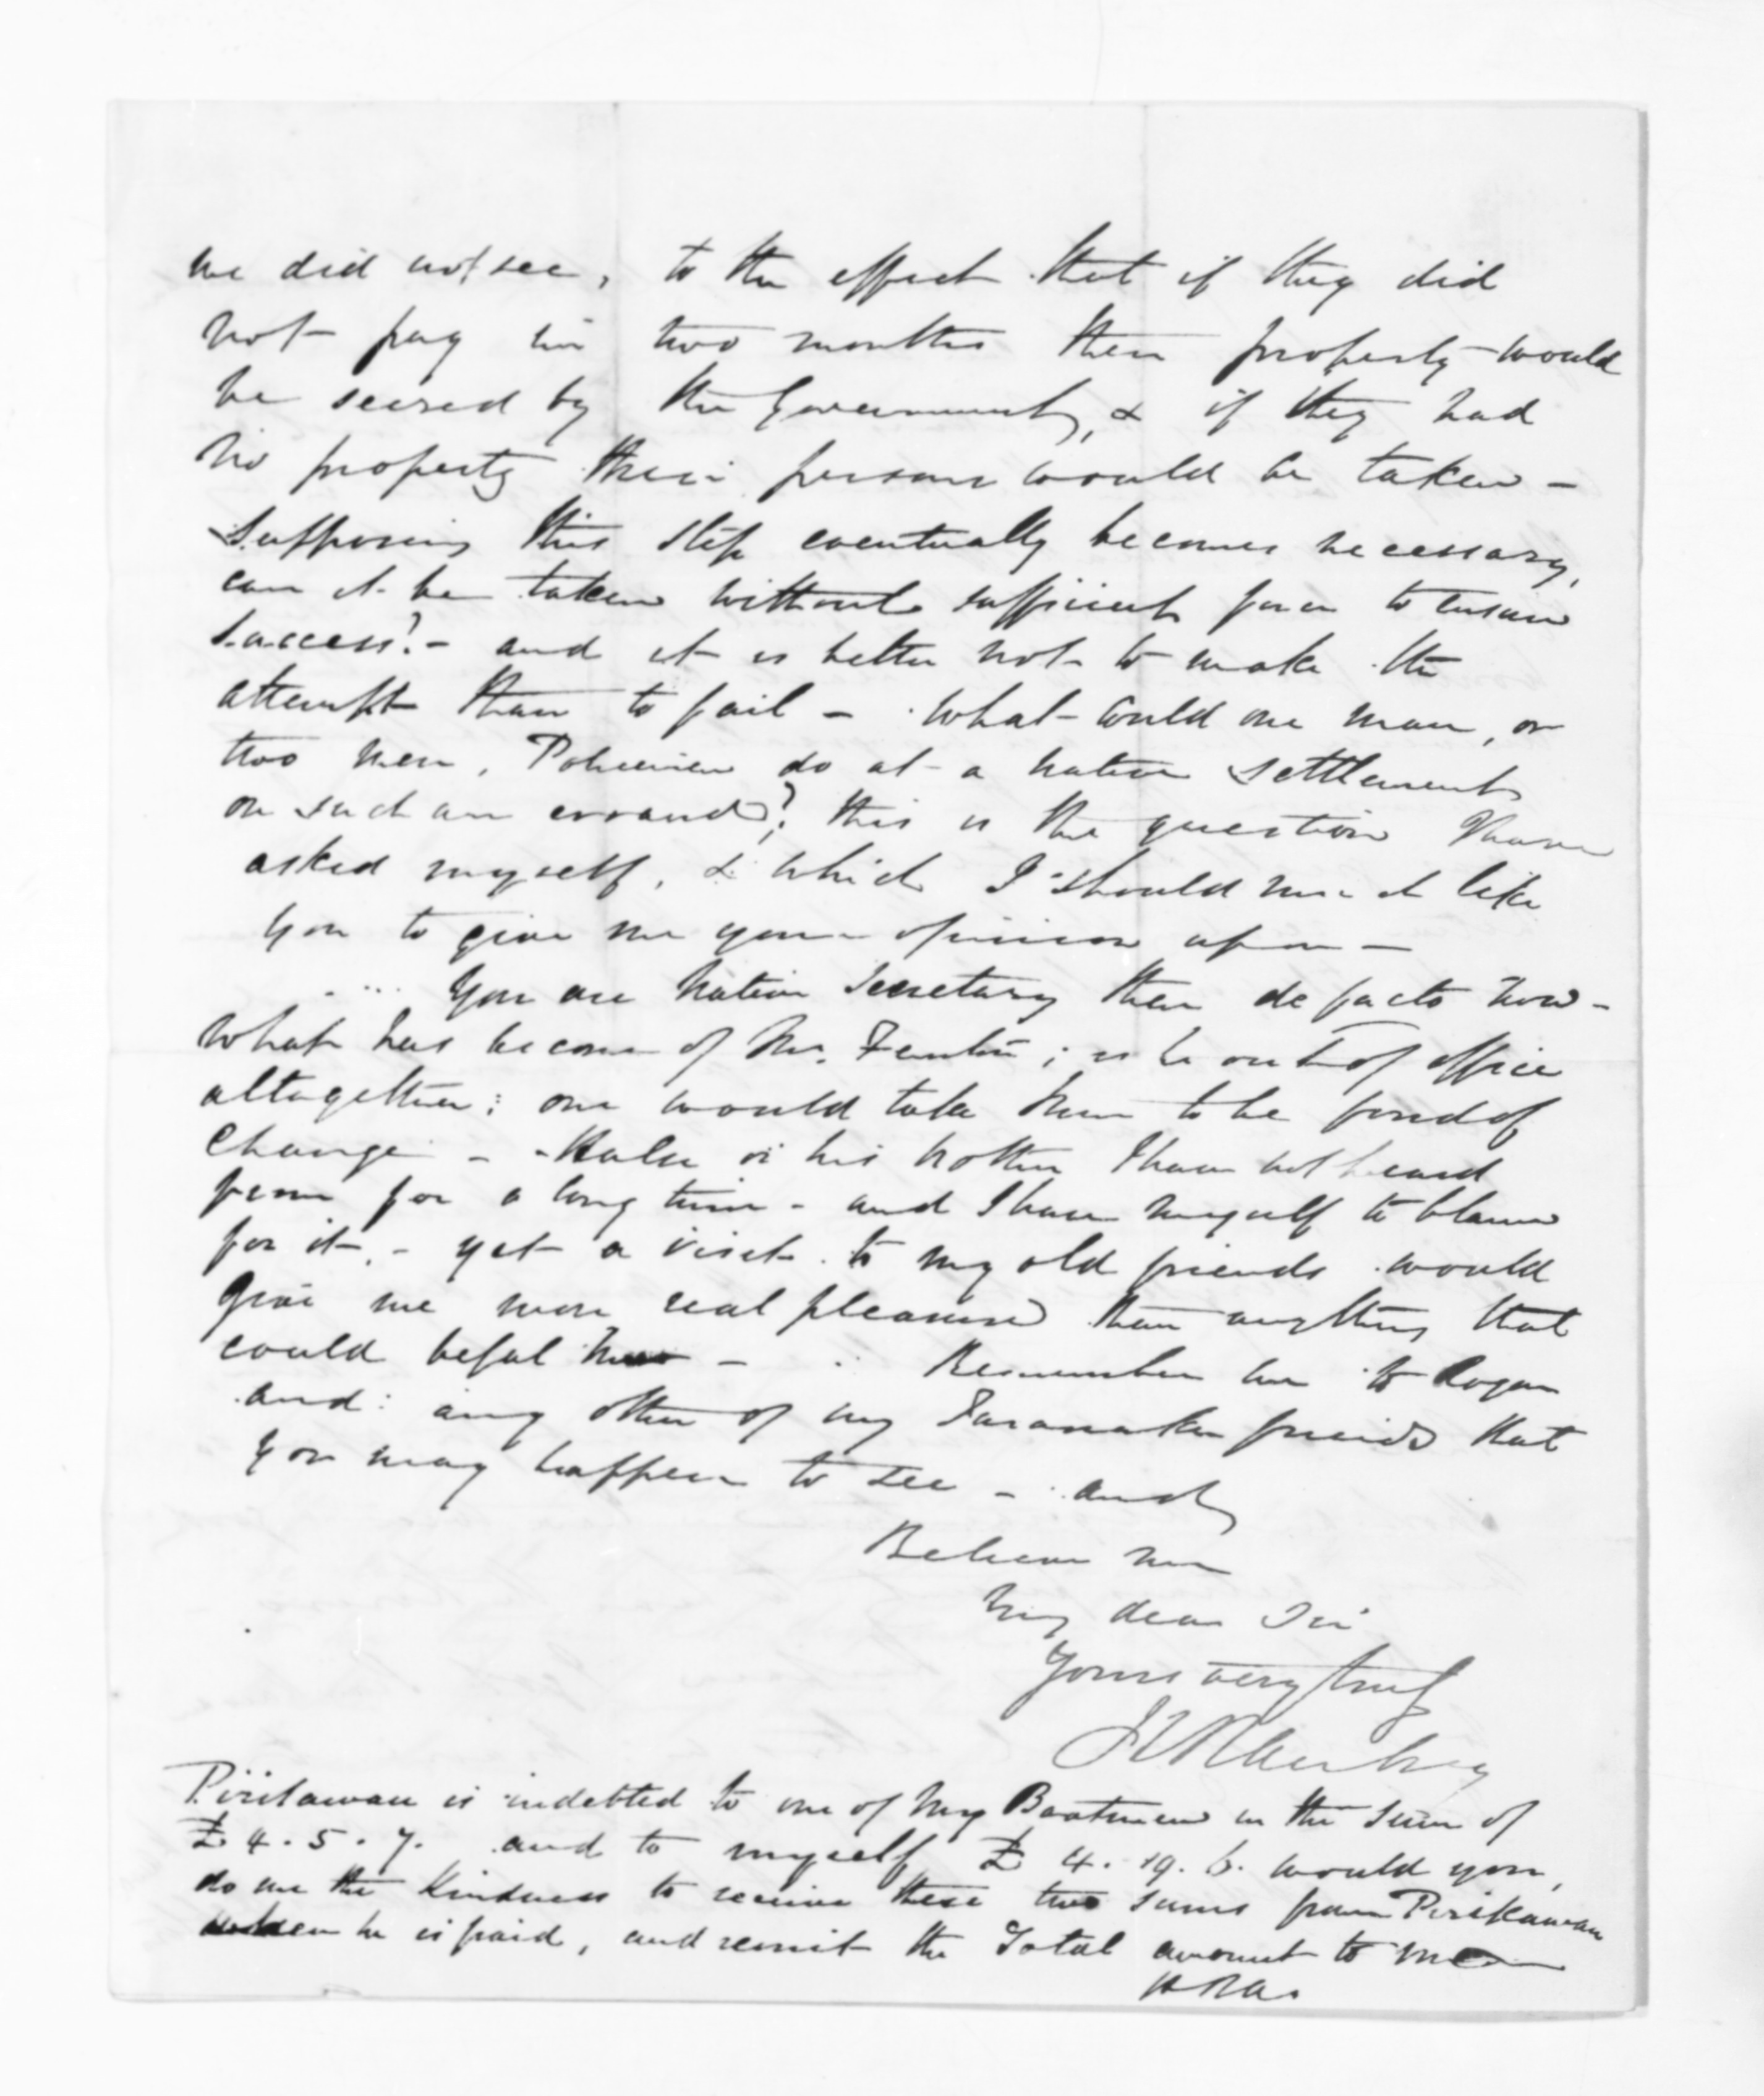 we did not see, to the effect that if they did
not pay in two months their property would
be seized by the Government, & if they had
no property their persons would be taken -
Supposing this step eventually becomes necessary,
can it be taken without sufficient force to ensure
success? - and it is better not to make the
attempt than to fail - What could one man, or
two men, Policemen do at a native settlement
on such an errand? this is the question I have
asked myself, & which I should much like
you to give me your opinion upon -
You are Native Secretary then de facto now -
What has become of Mr. Fenton; is he out of office
altogether: one would take him to be fond of
change - Halse or his brother I have not heard
from for a long time - and I have myself to blame
for it, - yet a visit to my old friends would
give me more real pleasure than anything that
could befal me - Remember me to Rogan
and any other of my Taranaki friends that
you may happen to see - and
Believe me
My dear Sir
Yours very truly
Pirikawau is indebted to one of my Boatmen in the sum of
£4.5.7. and to myself £4.19.6. would you,
do me the Kindness to receive these two sums from Pirikawau
when he is paid, and remit the Total amount to me